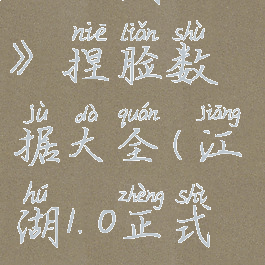 niē liǎn shù
》捏脸数
jù dà quán jiāng
据大全(江
hú zhèng shì
湖1.0正式